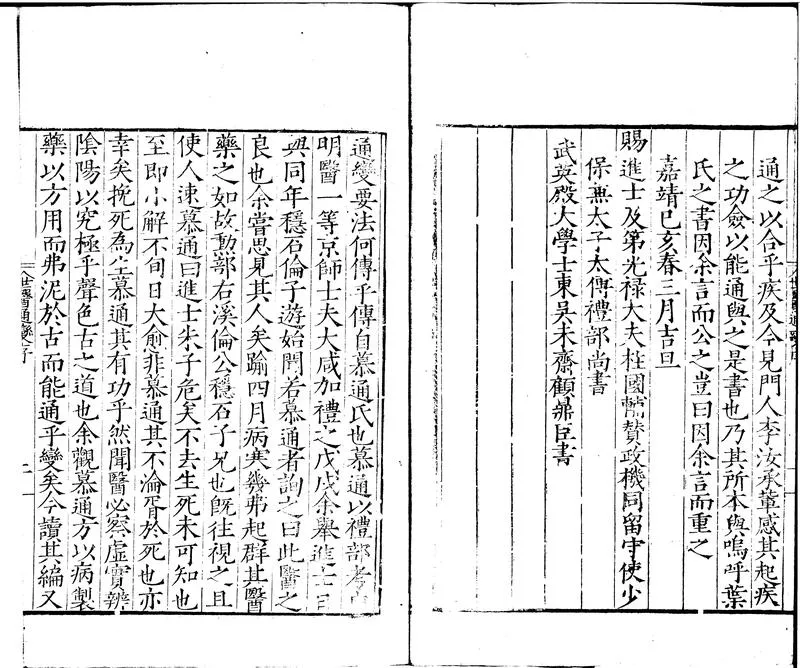 通之以合乎疾及今見門人李汝承輩感其起疾
之功僉以能通與之是書也乃其所本與嗚呼葉
氏之書因余言而公之豈曰因余言而重之
嘉靖己亥春三月吉旦
賜進士及第光禄大夫柱國輔贊政機同留守使少
保兼太子太傅禮部尚書
武英殿大學士東吳未齋顧鼎臣書
通變要法何傳乎傳自慕通氏也慕通以禮部考
明醫一等京師士夫大咸加禮之戊戌余舉進士
與同年穩石倫子游始聞若慕通者詢之曰此醫之
良也余嘗思見其人矣踰四月病寒幾弗起群其醫
藥之如故動鄰右溪倫公穩石子兄也旣往視之且
使人速慕通曰進士朱子危矣不去生死未可知也
至即小解不旬日大愈非慕通其不淪胥於死也亦
幸矣挽死為生慕通其有功乎然聞醫必察虛實辨
陰陽以究極乎聲色古之道也余觀慕通方以病製
藥以方用而弗泥於古而能通乎變矣今讀其編又